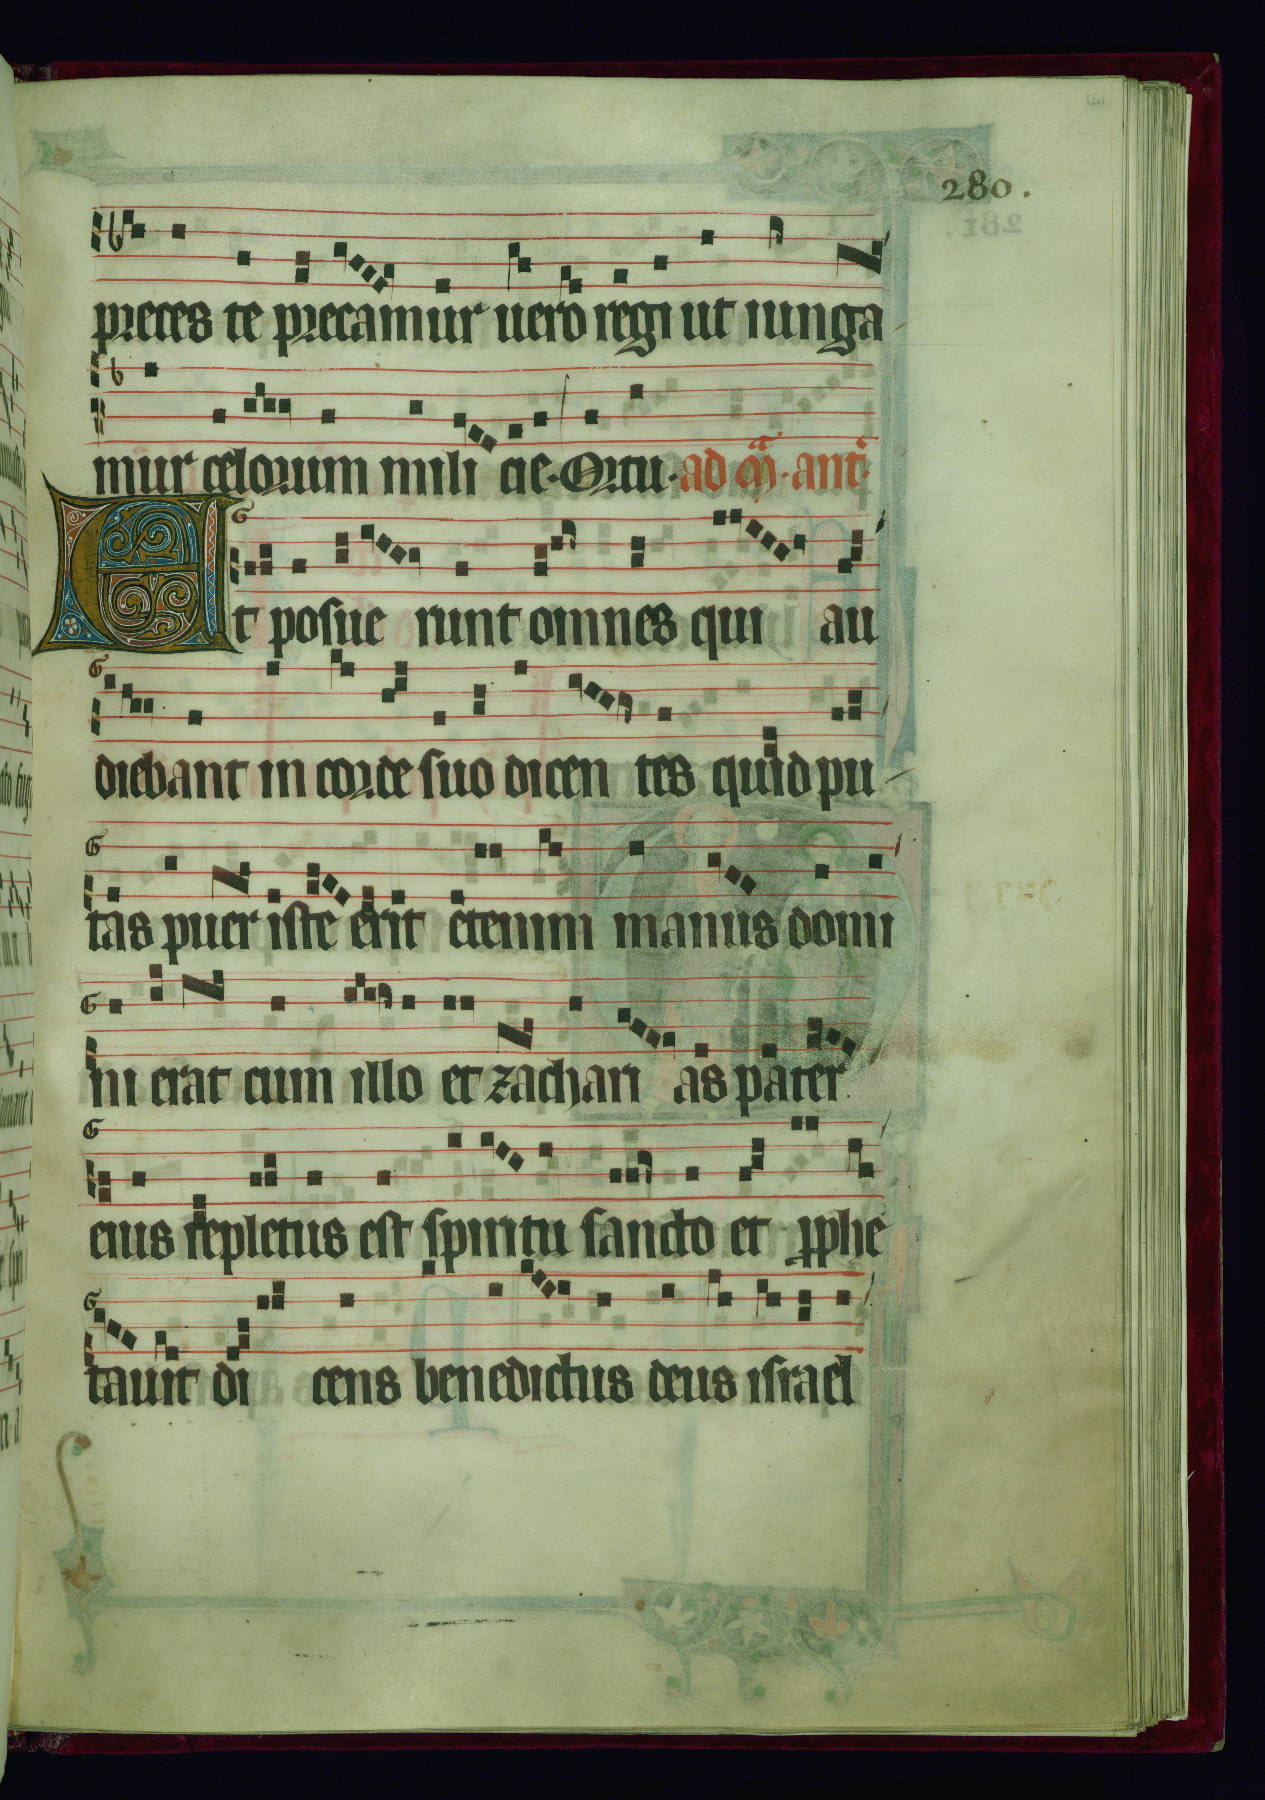 141
280.
preces te precamur uero regi ut iunga
mur celorum mili cie. Ortu. ad m̃. ant̃.
Et posue runt omnes qui au
diebant in corde suo dicen tes quid pu
tas puer iste erit etenim manus domi
ni erat cum illo et zachari as pater
eius repletus est spiritu sancto et ꝓphe
tauit di cens benedictus deus israel